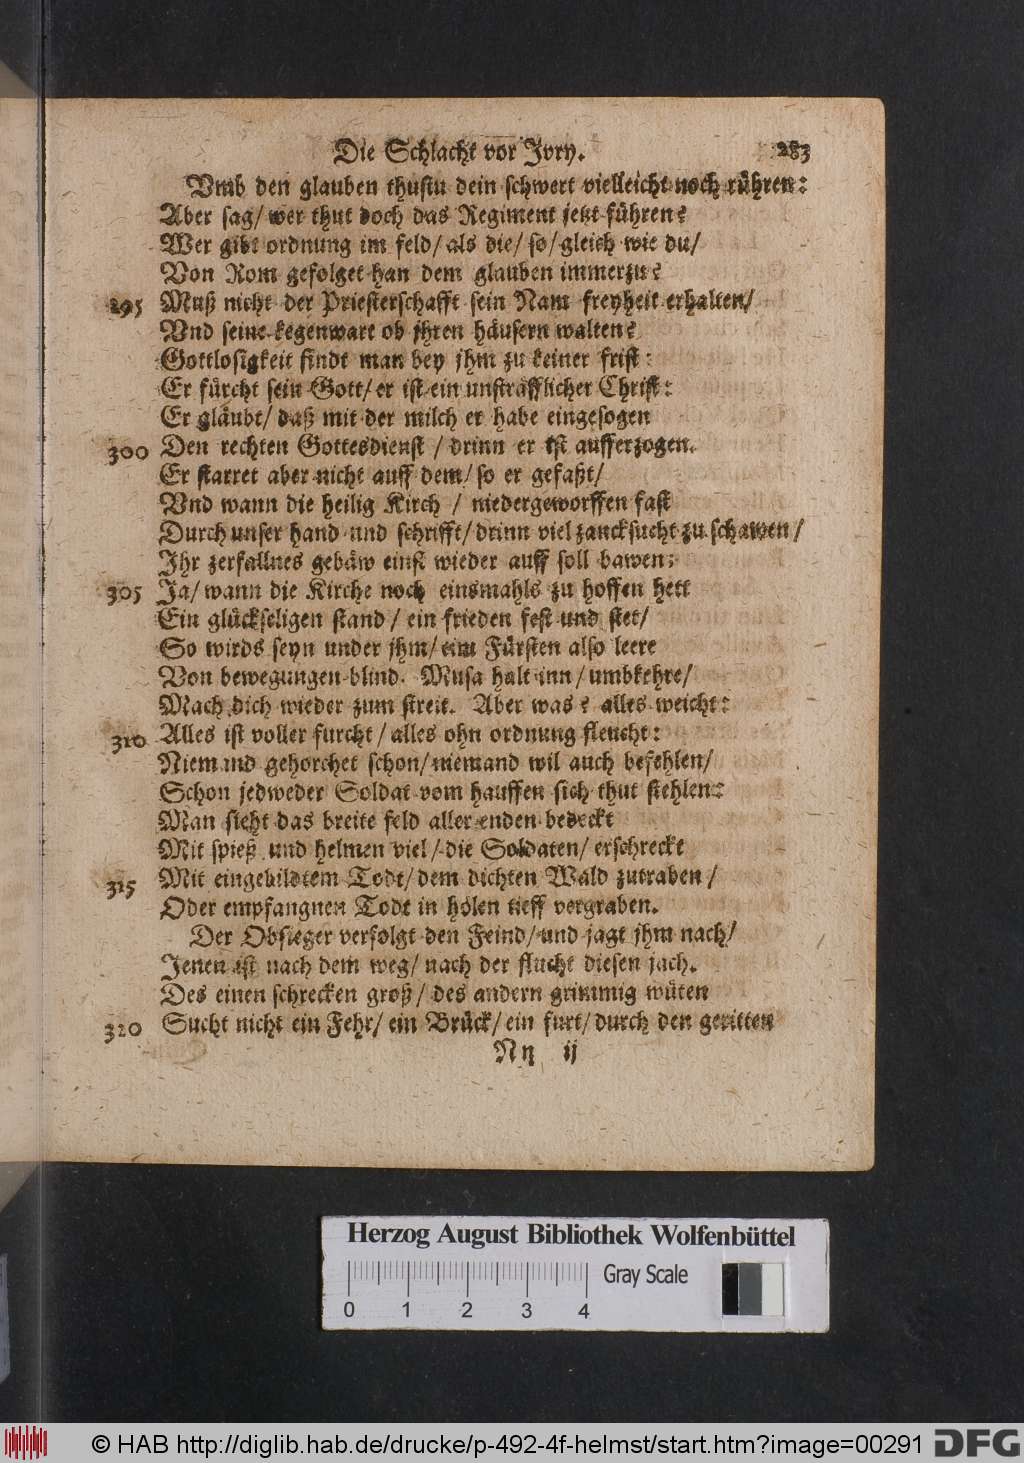 Die Schlacht vor Jvry. 283
Vmb den glauben thustu dein schwert vielleicht noch rühren:
Aber sag/ wer thut doch das Regiment jetzt führen?
Wer gibt ordnung im feld/ als die/ so/ gleich wie du/
Von Rom gefolget han dem glauben immerzu?
295 Muß nicht der Priesterschafft sein Nam freyheit erhalten/
Vnd seine kegenwart ob jhren häusern walten?
Gottlosigkeit findt man bey jhm zu keiner frist:
Er fürcht sein Gott/ er ist ein unsträfflicher Christ:
Er gläubt/ daß mit der milch er habe eingesogen
300 Den rechten Gottesdienst / drinn er ist aufferzogen.
Er starret aber nicht auff dem/ so er gefaßt/
Vnd wann die heilig Kirch / niedergeworffen fast
Durch unser hand und schrifft/ drinn viel zancksucht zu schawen/
Jhr zerfallnes gebäw einst wieder auff soll bawen:
305 Ja/ wann die Kirche noch einsmahls zu hoffen hett
Ein glückseligen stand/ ein frieden fest und stet/
So wirds seyn under jhm/ eim Fürsten also leere
Von bewegungen blind. Musa halt inn/ umbkehre/
Mach dich wieder zum streit. Aber was? alles weicht:
310 Alles ist voller furcht/ alles ohn ordnung fleucht:
Niemand gehorchet schon/ niemand wil auch befehlen/
Schon jedweder Soldat vom hauffen sich thut stehlen:
Man sieht das breite feld aller enden bedeckt
Mit spieß und helmen viel/ die Soldaten/ erschreckt
315 Mit eingebildtem Todt/ dem dichten Wald zutraben/
Oder empfangnen Todt in holen tieff vergraben.
Der Obsieger verfolgt den Feind/ und jagt jhm nach/
Jenen ist nach dem weg/ nach der flucht diesen jach.
Des einen schrecken groß/ des andern grimmig wüten
320 Sucht nicht ein Fehr/ ein Brück/ ein furt/ durch den geritten
Nn ij
Herzog August Bibliothek Wolfenbüttel
Gray Scale
0 1 2 3 4
© HAB http://diglib.hab.de/drucke/p-492-4f-helmst/start.htm?image=00291 DFG